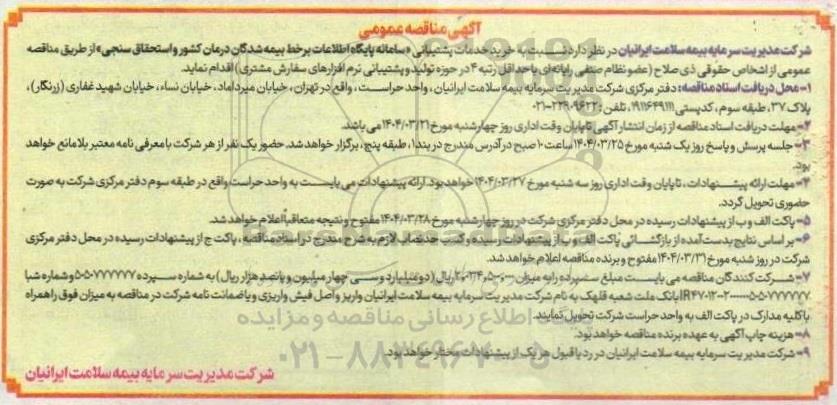 آگهی مناقصه عمومی
شرکت مدیریت سرمایه بیمه سلامت ایرانیان در نظر دارد نسبت به خرید خدمات پشتیبانی «سامانه پایگاه اطلاعات برخط بیمه شدگان درمان کشور و استحقاق سنجی» از طریق مناقصه
عمومی از اشخاص حقوقی ذی صلاح (عضو نظام صنفی رایانه‌ای با حداقل رتبه ۴ در حوزه تولید و پشتیبانی نرم افزارهای سفارش مشتری) اقدام نماید.
۱- محل دریافت اسناد مناقصه: دفتر مرکزی شرکت مدیریت سرمایه بیمه سلامت ایرانیان، واحد حراست، واقع در تهران، خیابان میرداماد، خیابان نساء، خیابان شهید غفاری (زرنگار)،
پلاک ۳۷، طبقه سوم، کدپستی ۱۹۱۱۶۴۹۱۱۱، تلفن: ۲۲۹۰۹۶۲۲-۰۲۱
۲- مهلت دریافت اسناد مناقصه از زمان انتشار آگهی تا پایان وقت اداری روز چهارشنبه مورخ ۱۴۰۴/۰۳/۲۱ می باشد.
۳- جلسه پرسش و پاسخ روز یک شنبه مورخ ۱۴۰۴/۰۳/۲۵ ساعت ۱۰ صبح در آدرس مندرج در بند ۱، طبقه پنج، برگزار خواهد شد. حضور یک نفر از هر شرکت با معرفی نامه معتبر بلامانع خواهد
بود.
۴- مهلت ارائه پیشنهادات، تا پایان وقت اداری روز سه شنبه مورخ ۱۴۰۴/۰۳/۲۷ خواهد بود. ارائه پیشنهادات می بایست به واحد حراست واقع در طبقه سوم دفتر مرکزی شرکت به صورت
حضوری تحویل گردد.
۵- پاکت الف و ب از پیشنهادات رسیده در محل دفتر مرکزی شرکت در روز چهارشنبه مورخ ۱۴۰۴/۰۳/۲۸ مفتوح و نتیجه متعاقباً اعلام خواهد شد.
۶- بر اساس نتایج بدست آمده از بازگشائی پاکت الف و ب از پیشنهادات رسیده و کسب حد نصاب لازم به شرح مندرج در اسناد مناقصه، پاکت ج از پیشنهادات رسیده در محل دفتر مرکزی
شرکت در روز شنبه مورخ ۱۴۰۴/۰۳/۳۱ مفتوح و برنده مناقصه اعلام خواهد شد.
۷- شرکت کنندگان مناقصه می بایست مبلغ سپرده را به میزان ۲,۰۳۴,۵۰۰,۰۰۰ ریال (دو میلیارد و سی چهار میلیون و پانصد هزار ریال) به شماره سپرده ۵۰۵۰۷۷۷۷۷۷ و شماره شبا
بانک ملت شعبه قلهک به نام شرکت مدیریت سرمایه بیمه سلامت ایرانیان واریز و اصل فیش واریزی و یا ضمانت نامه شرکت در مناقصه به میزان فوق را همراه
با کلیه مدارک در پاکت الف به واحد حراست شرکت تحویل نمایند.
۸- هزینه چاپ آگهی به عهده برنده مناقصه خواهد بود.
۹- شرکت مدیریت سرمایه بیمه سلامت ایرانیان در رد یا قبول هر یک از پیشنهادات مختار خواهد بود.
شرکت مدیریت سرمایه بیمه سلامت ایرانیان